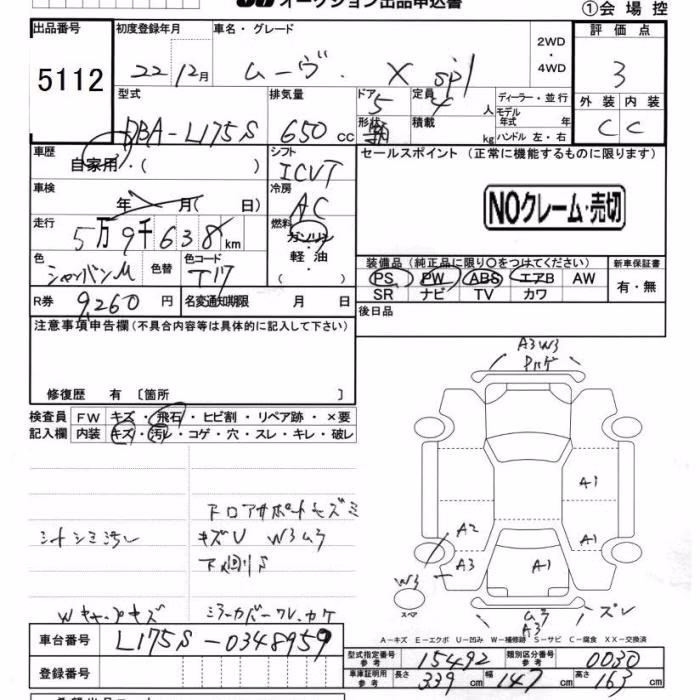 オークション出品申込書
①会場控
出品番号 初度登録年月 車名・グレード 2WD ・ 4WD 評価点
5112 22年12月 ムーヴ X spl 3
型式 排気量 ドア 5 定員 4人 ディーラー・並行 外装 内装
DBA-L175S 650cc 形状 積載 kg モデル年式 年 ハンドル 左・右 C C
車歴 自家用・( ) シフト ICVT セールスポイント (正常に機能するものに限ります)
車検 年 月( 日) 冷房 AC
NOクレーム・売切
走行 5万9千638km 燃料 ガソリン 軽油
色 シャンパンM 色替 色コード T17
装備品(純正品に限り〇をつけてください) 新車保証書
PS PW ABS エアB AW 有・無
SR ナビ TV カワ
R券 9,260円 名変通知期限 月 日
後日品
注意事項申告欄(不具合内容等は具体的に記入して下さい)
修復歴 有 〔箇所 〕
検査員記入欄 FW キズ・飛石・ヒビ割・リペア跡・×要
内装 キズ・汚レ・コゲ・穴・スレ・キレ・破レ
A3 W3
A1
A2
A1
A3
A1
W3
スペア
ムラ
A3
ズレ
シートシミ汚レ
キズU W3ムラ
下廻リS
Wキャップキズ
ミラーカバーワレ、カケ
A-キズ E-エクボ U-凹み W-補修跡 S-サビ C-腐食 XX-交換済
車台番号 L175S-0348959
型式指定番号 参考 15492 類別区分番号 参考 0030
登録番号
車庫証明用 参考 長さ 339cm 幅 147cm 高さ 163cm